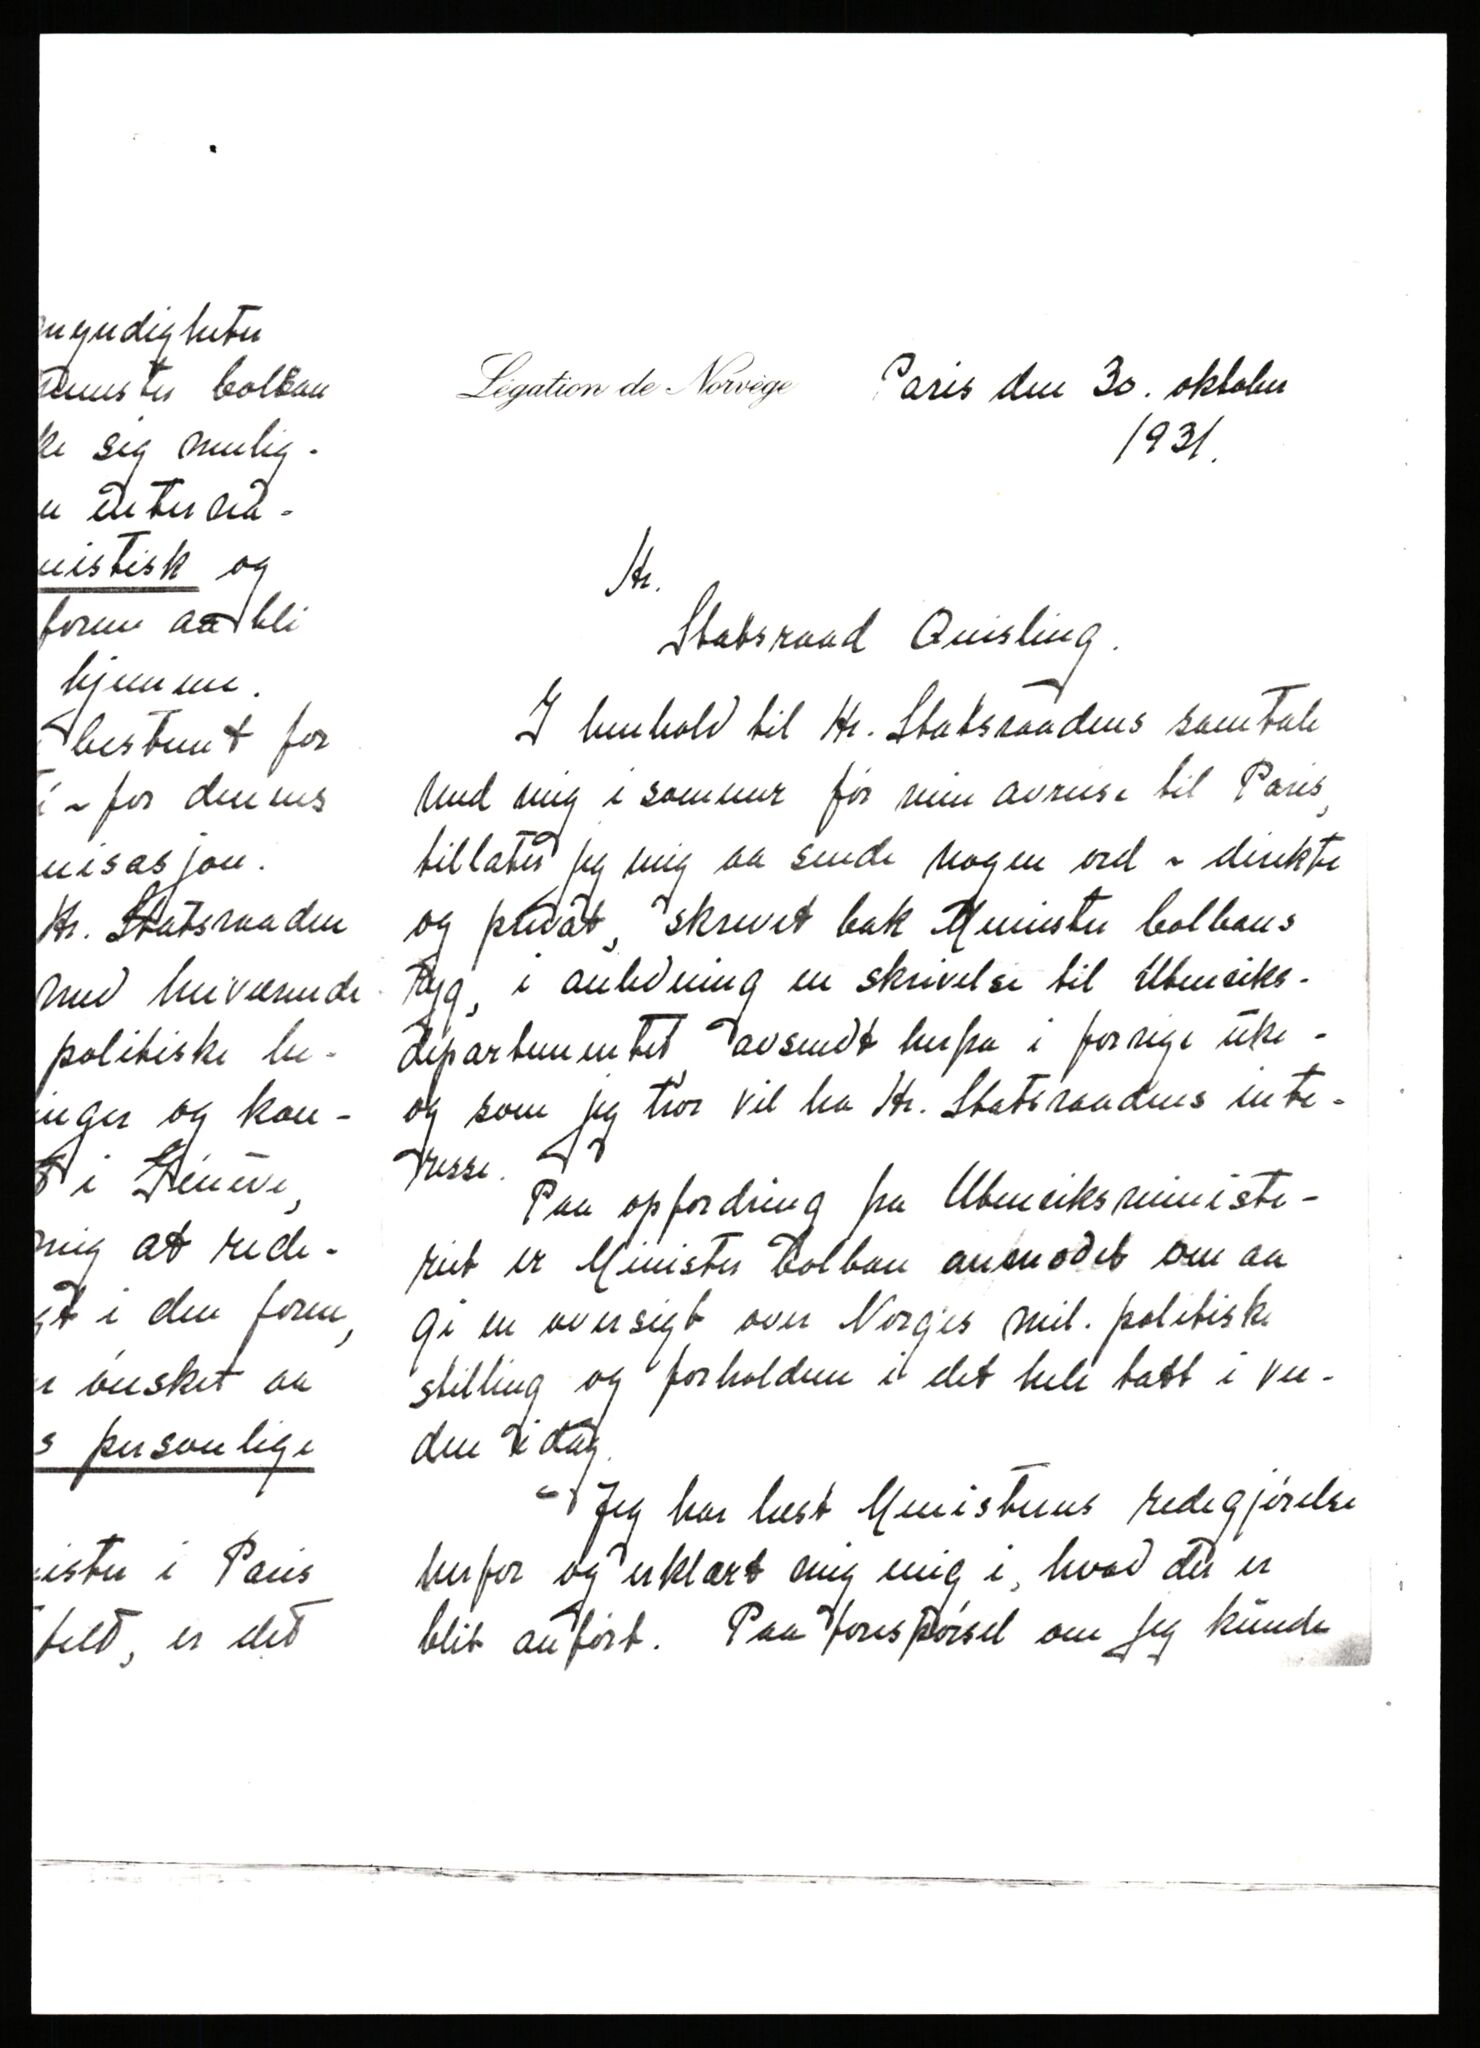 myndigheter
Minister Colban
ke sig mulig-
n interna-
nistisk og
form aa bli
hjemme.
bestemt for
i - for dennes
nisasjon.
Hr. Statsraaden
med herværende
politiske be-
inger og kon-
t i Génève,
mig at rede-
gt i den form,
r ønsket aa
s personlige
nister i Paris
felt, er det
Légation de Norvège Paris den 30. oktober
1931.
Hr.
Statsraad Quisling.
I henhold til Hr. Statsraadens samtale
med mig i sommer før min avreise til Paris,
tillater jeg mig aa sende nogen ord - direkte
og privat, skrevet bak Minister Colbans
ryg, i anledning en skrivelse til Utenriks-
departementet, avsendt herfra i forrige uke -
og som jeg tror vil ha Hr. Statsraadens inte-
resse.
Paa opfordring fra Utenriksministe-
riet er Minister Colban anmodet om aa
gi en oversigt over Norges mil. politiske
stilling og forholdene i det hele tatt i ver-
den idag.
- Jeg har læst Ministerens redegjørelse
herfor og erklært mig enig i, hvad der er
blit anført. Paa forespørsel om jeg kunde